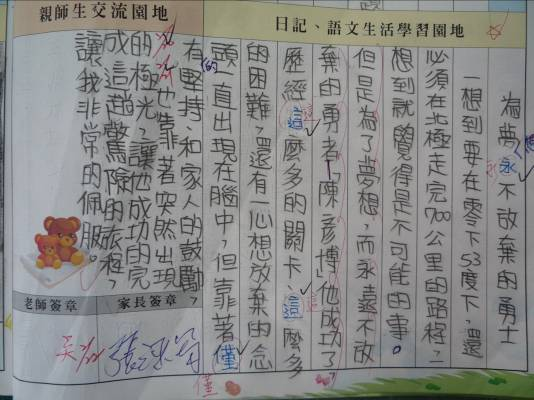 親師生交流園地
日記、語文生活學習園地
為夢想永不放棄的勇士
一想到要在零下53度下,還
必須在北極走完700公里的路程,
想到就覺得是不可能的事。
但是為了夢想,而永遠不放
棄的勇者「陳彥博」他成功了,
歷經這麼多的關卡、這麼多
的困難,還有一心想放棄的念
頭一直出現在腦中,但靠著僅
有的堅持、和家人的鼓勵,
也靠著突然出現
的極光,讓他成功的完
成這趟驚險的旅程,
讓我非常的佩服。
老師簽章
家長簽章
永
這
這
僅